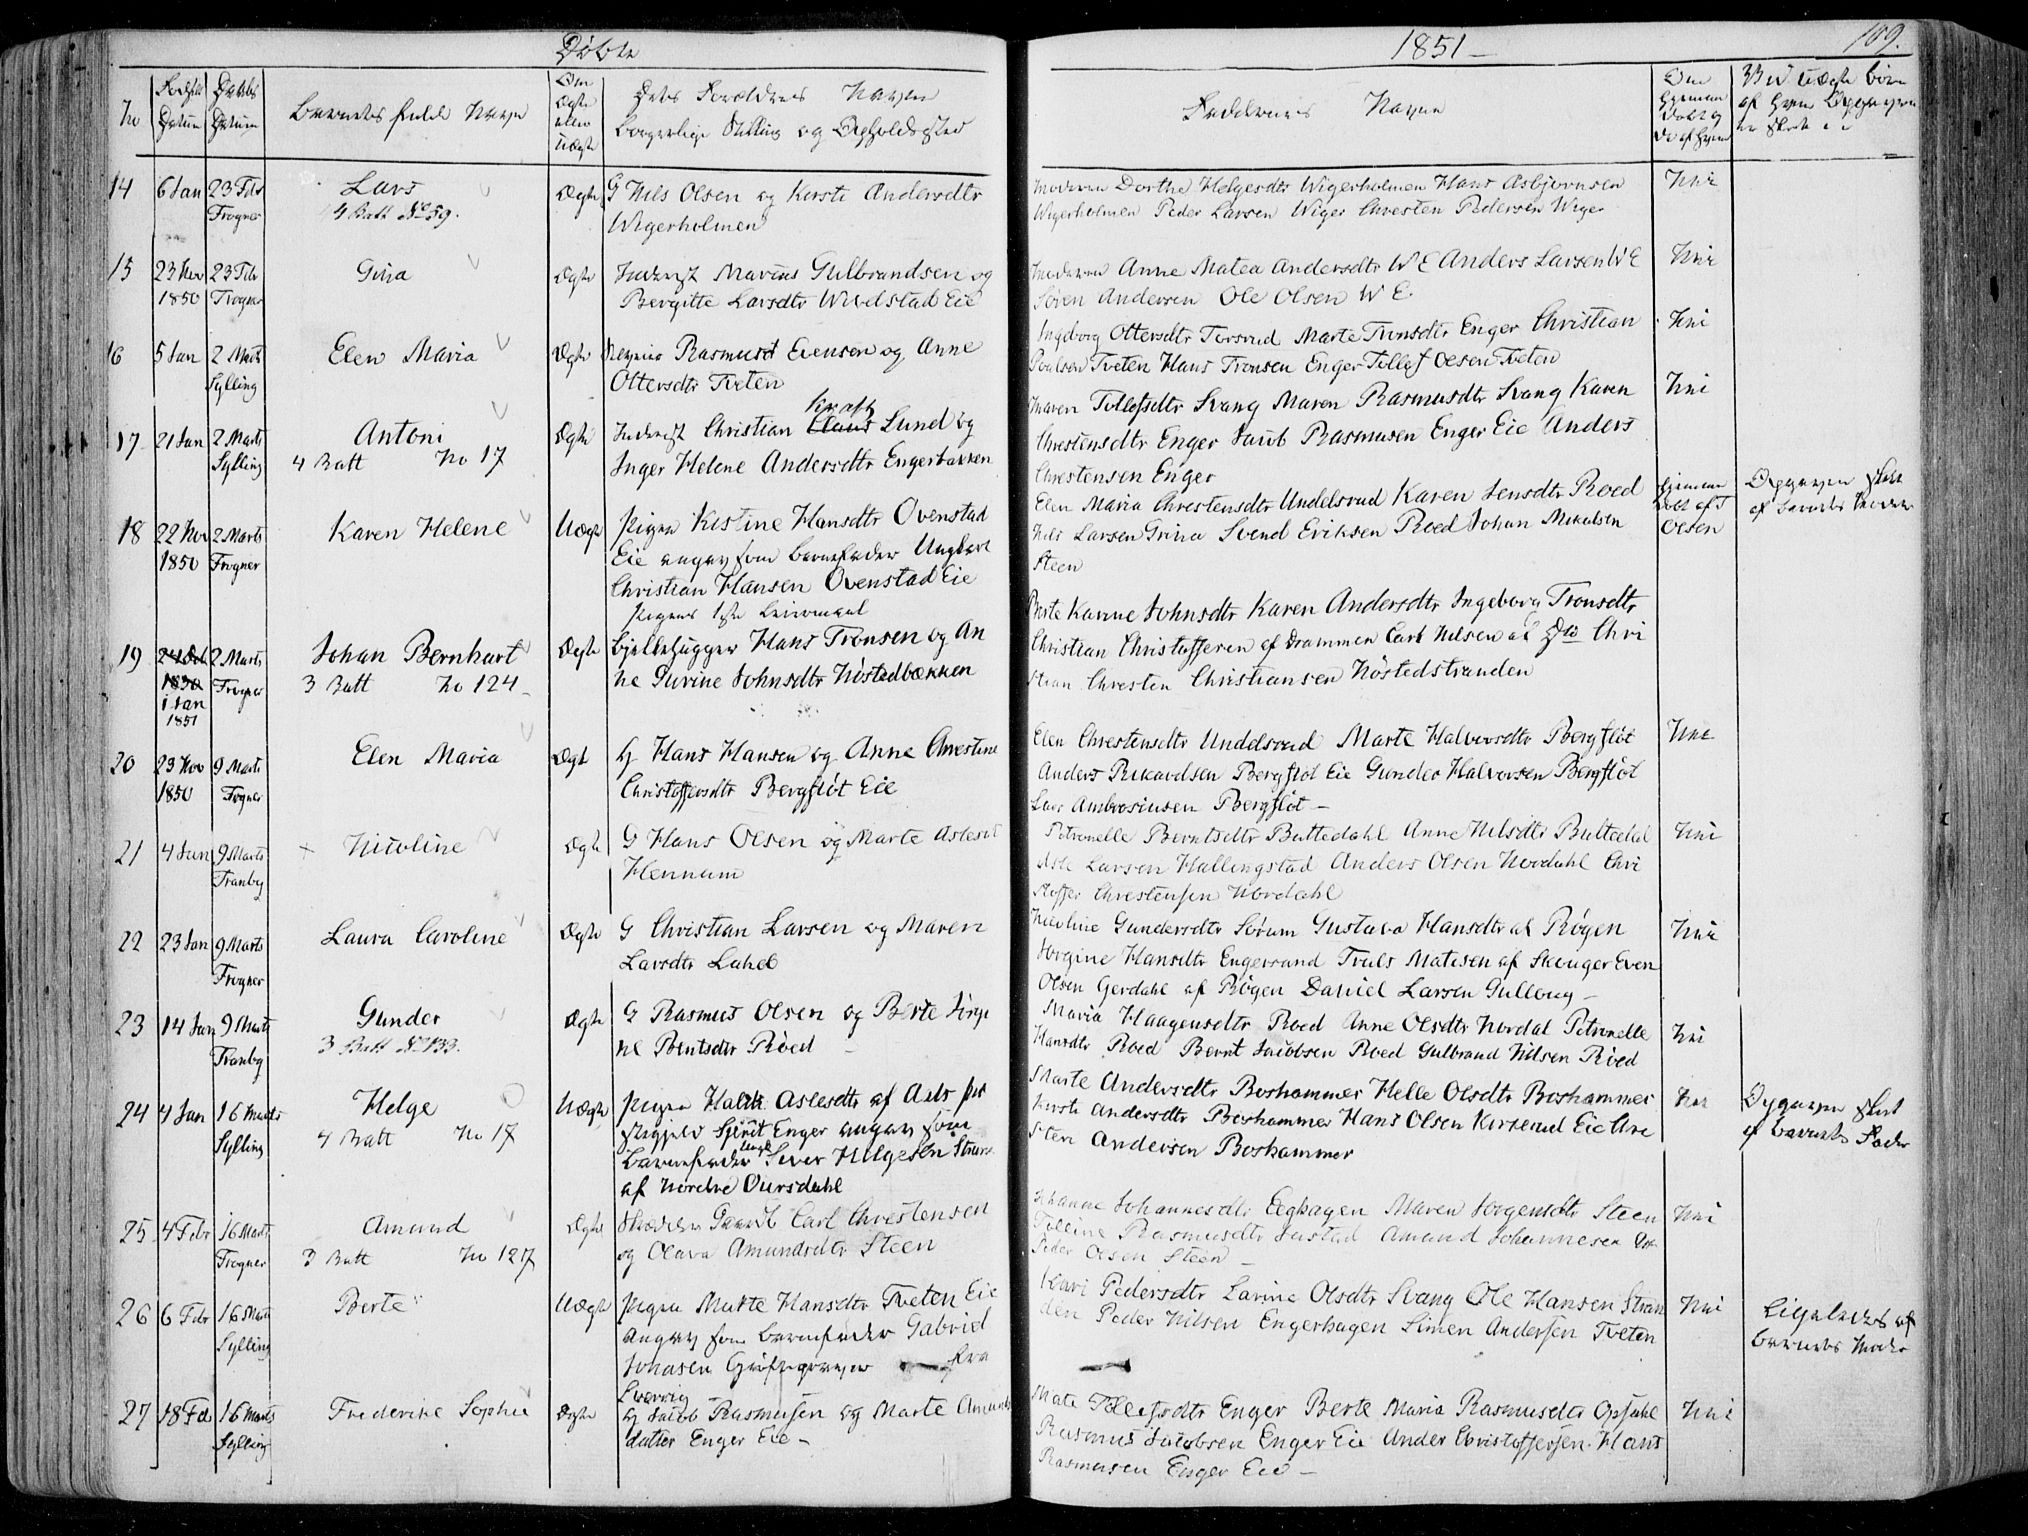 Døbte
1851 —
109.
No
Fødsels Datum
Daabs Datum
Barnets fulde Navn
Om Ægte eller Uægte
Dets Forældres Navn
borgerlige Stilling og Opholdssted
Faddernes Navne
Om hjemmedøbt og
Ved Uægte børn
af hvem Opgaven
er skeet
14 6 Jan 23 Febr Lars Ægte G Nils Olsen og Kirsti Andersdtr
Frogner 4 Batt No 59. Wigerholmen
Moderen Dorthe Helgesdtr Wigerholmen Hans Asbjørnsen Nei
Wigerholmen Peder Larsen Wiger Christen Pedersen Wiger
15 23 Nov 23 Febr Gina Ægte Inderst Marius Gulbrandsen og
1850 Frogner Bergitte Larsdtr Wivelstad Eie
Moderen Anne Matea Andersdtr W E Anders Larsen W E Nei
Søren Andersen Ole Olsen W E.
16 5 Jan 2 Marts Elen Maria Ægte Rasmus Evensen og Anne
Sylling Ottersdtr Tveten
Ingeborg Ottersdtr Torsrud Marte Tronsdtr Enger Christian Nei
Poulsen Tveten Hans Tronsen Enger Tollef Olsen Tveten
17 21 Jan 2 Marts Antoni Ægte Inderst Christian Claus Lund og
Sylling 4 Batt No 17 Inger Helene Andersdtr Engerbakken
Maren Tollefsdtr Svang Maren Rasmusdtr Svang Karen Nei
Christensdtr Enger Jacob Rasmusen Enger Eie Anders
Christensen Enger
18 22 Nov 2 Marts Karen Helene Uægte Pigen Kistine Hansdtr Ovenstad
1850 Frogner Eie angav som Barnefader Ungkarl
Christian Hansen Ovenstad Eie
Pigens 1ste Leiermaal
Elen Maria Christensdtr Undelsrud Karen Jensdtr Roed hjemmedøbt af T Olsen
Nils Larsen Grina Svend Eriksen Roed Johan Mikelsen
Steen
Opgaven skeet
af Barnets Moder
19 24 Oct 1850 1 Jan 1851 2 Marts Johan Bernhart Ægte Bjelkehugger Hans Tronsen og An
Frogner 3 Batt No 124 ne Gurine Johnsdtr Nøstedbækken
Berte Karine Johnsdtr Karen Andersdtr Ingeborg Tronsdtr
Christian Christoffersen af Drammen Carl Nilsen af Dto Chri
stian Christen Christiansen Nøstedstranden
20 23 Nov 9 Marts Elen Maria Ægte G Hans Hansen og Anne Christine
1850 Frogner Christoffersdtr Bergfløt Eie
Elen Christensdtr Undelsrud Marte Halvorsdtr Bergfløt Nei
Anders Rikardsen Bergfløt Eie Gunder Halvorsen Bergfløt
Lars Ambrosiusen Bergfløt —
21 4 Jan 9 Marts Nicoline Ægte G Hans Olsen og Marte Aslesdt
Tranby Hennum
Petronelle Berntsdtr Buttedahl Anne Nilsdtr Buttedal Nei
Asle Larsen Hallingstad Anders Olsen Nordahl Chri
stoffer Christensen Nordahl
22 23 Jan 9 Marts Laura Caroline Ægte G Christian Larsen og Maren
Frogner Larsdtr Lahel
Nicoline Gundersdtr Sørum Gustava Hansdtr af Røgen Nei
Jørgine Hansdtr Engersand Truls Matesen af Skouger Even
Olsen Gerdahl af Røgen Daniel Larsen Gulloug —
23 14 Jan 9 Marts Gunder Ægte G Rasmus Olsen og Berte Jørgi
Tranby 3 Batt No 133. ne Berntsdtr Røed —
Maria Haagensdtr Roed Anne Olsdtr Nordal Petronelle Nei
Hansdtr Roed Bernt Jacobsen Roed Gulbrand Nilsen Røed
24 4 Jan 16 Marts Helge Uægte Pigen Aslesdtr af Aals Præ
Sylling 4 Batt No 17 stegjeld Enger angav som
Barnefader Sever Helgesen
af Nordre Oursdahl
Marte Andersdtr Boshammer Helle Olsdtr Boshammer Nei
Kirsti Andersdtr Boshammer Hans Olsen Eie Chre
sten Andersen Boshammer
Opgaven skeet
af Barnets Fader
25 4 Febr 16 Marts Amund Ægte Carl Christensen
Frogner 3 Batt No 127 og Olava Amundsdtr Steen
Johanne Johannesdtr Eeghagen Maren Jørgensdtr Steen Nei
Rasmusdtr Justad Amund Johannesen
Peder Olsen Steen —
26 6 Febr 16 Marts Berte Uægte Pigen Marte Hansdtr Tveten Eie
Sylling angav som Barnefader Gabriel
Jonasen Grøftegraver fra
Sverrig
Kari Pedersdtr Larine Olsdtr Svang Ole Hansen Stran Nei
den Peder Nilsen Engerhagen Simen Andersen Tveten
Ligeledes af
Barnets Moder
27 18 Feb 16 Marts Frederike Sophie Ægte G Jacob Rasmusen og Marte Amunds
Sylling datter Enger Eie —
Mate Tollefsdtr Enger Berte Maria Rasmusdtr Opsahl Nei
Rasmus Jacobsen Enger Eie Ander Christoffersen Hans
Rasmusen Enger Eie —